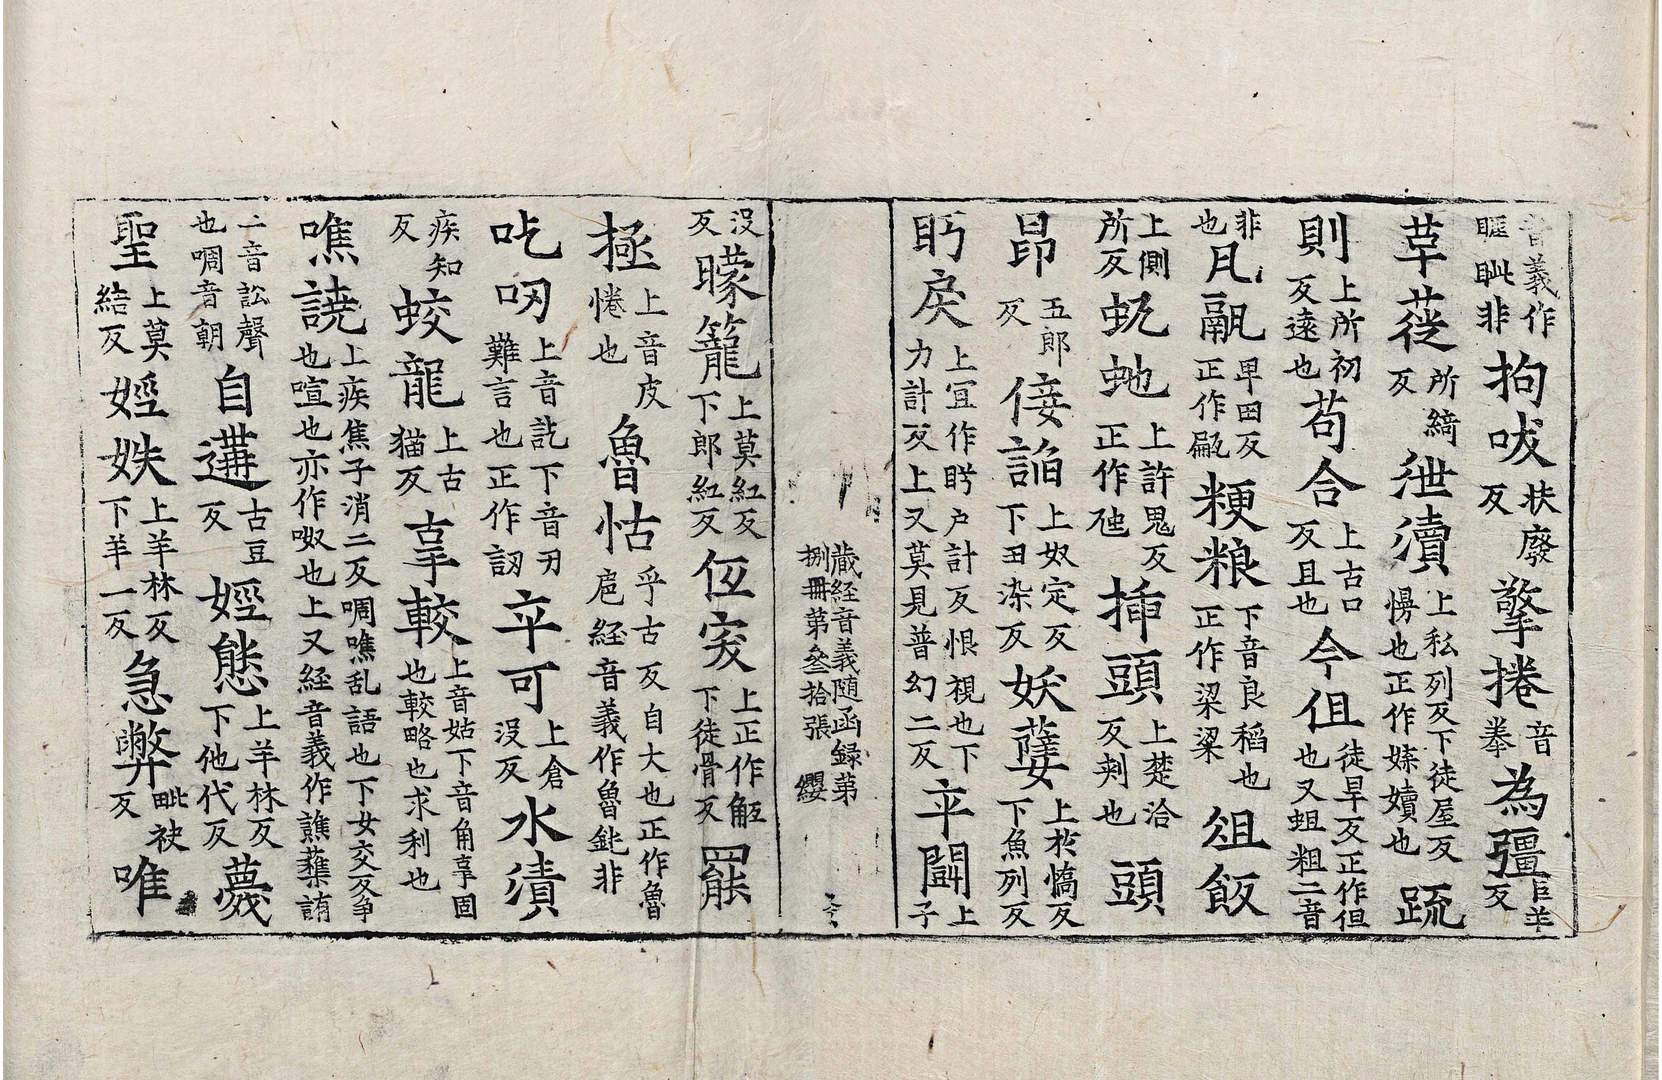 音義作𭿇眦非拘吠扶廢反擎捲音拳為彊巨羊反
草蓰所綺反紲瀆上私列反下徒屋反慢也正作媟嬻也䟽
則上所初反遠也苟合上古口反且也今伹徒旱反正作但也又蛆粗二音
非也凡㼝早田反正作㼐粳粮下音良稻也正作粱梁俎飯
上側所反虬虵上許鬼反正作虺插頭上楚洽反刾也頭
昂五郎反倿諂上奴定反下丑染反妖孽上於憍反下魚列反
眄戾上宜作盻户計反恨視也下力計反上又莫見普幻二反卒闘上子
蔵経音義随函録第捌冊第叄拾張 纓
没反矇籠上莫紅反下郎紅反伍突上正作𧢲下徒骨反羆
極上音皮惓也魯怙乎古反自大也正作魯扈経音義作魯鈍非
吃吲上音訖下音刃難言也正作訒卒可上倉没反水漬
疾知反蛟龍上古猫反辜較上音姑下音角辜固也較略也求利也
噍譊上疾焦子消二反啁噍乱語也下女交反爭也喧也亦作呶也上又経音義作譙蘓誘
二音訟聲也啁音朝自遘古豆反婬態上羊林反下他代反薎
聖上莫結反婬妷上羊林反下羊一反急弊毗袂反唯